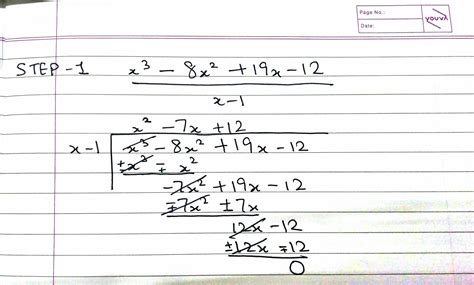 Page No.:
Date:
youva
STEP-1 x³ - 8x² + 19x - 12
x-1
x² - 7x + 12
x-1 x³ - 8x² + 19x - 12
+x³ ∓ x²
-7x² + 19x - 12
∓7x² ± 7x
12x - 12
±12x ∓ 12
0